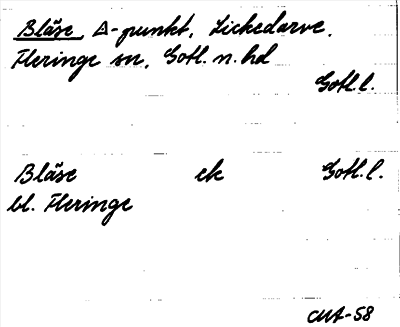 Bläse, Δ-punkt, Lickedarve,
Fleringe sn, Gotl. n. hd
Gotl. l.
Bläse ek Gotl. l.
bl. Fleringe
CMA-58